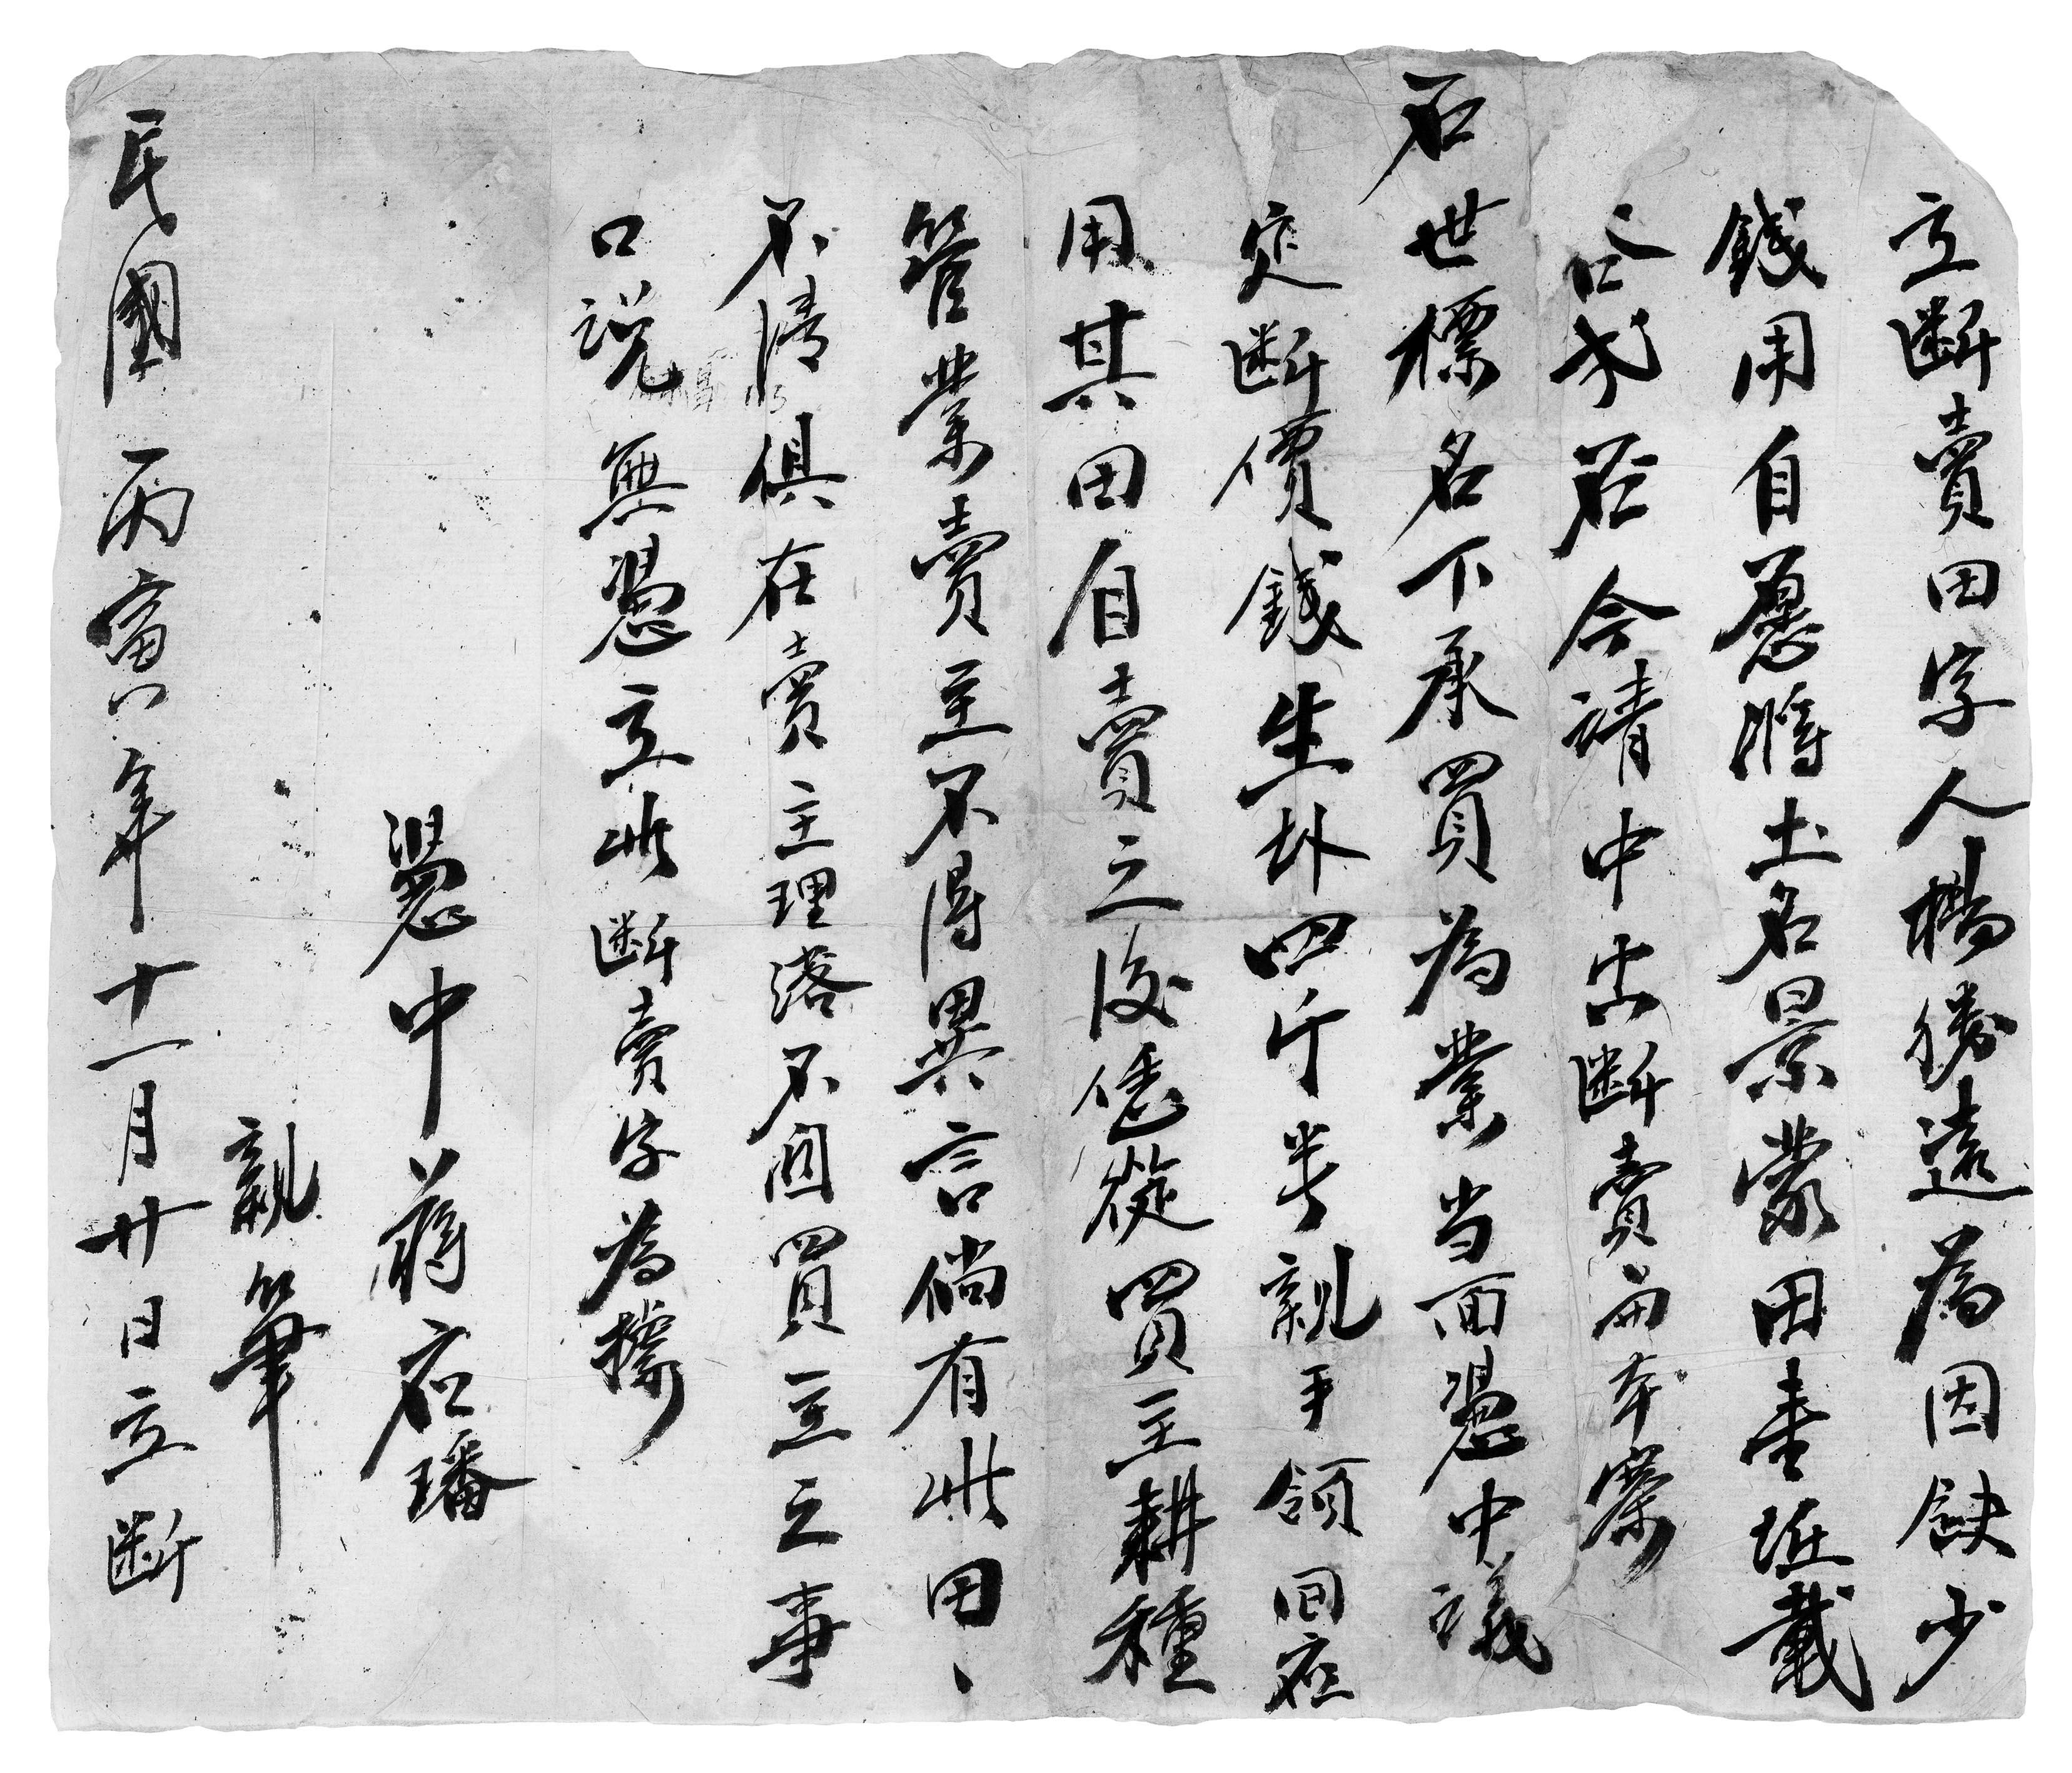 立断賣田字人楊勝遠為因缺少
錢用自愿將土名景蒙田壹坵載
谷弍石今請中出断賣與本寨
石世標名下承買為業当面憑中議
定断價錢生卦四斤半親手領回应
用其田自賣之後恁從買主耕種
管業賣主不得異言倘有此田、
不清俱在賣主理落不関買主之事
口説無憑立此断賣字為據
憑中 蔣在璠
親筆
民國丙寅年十一月廿日立断